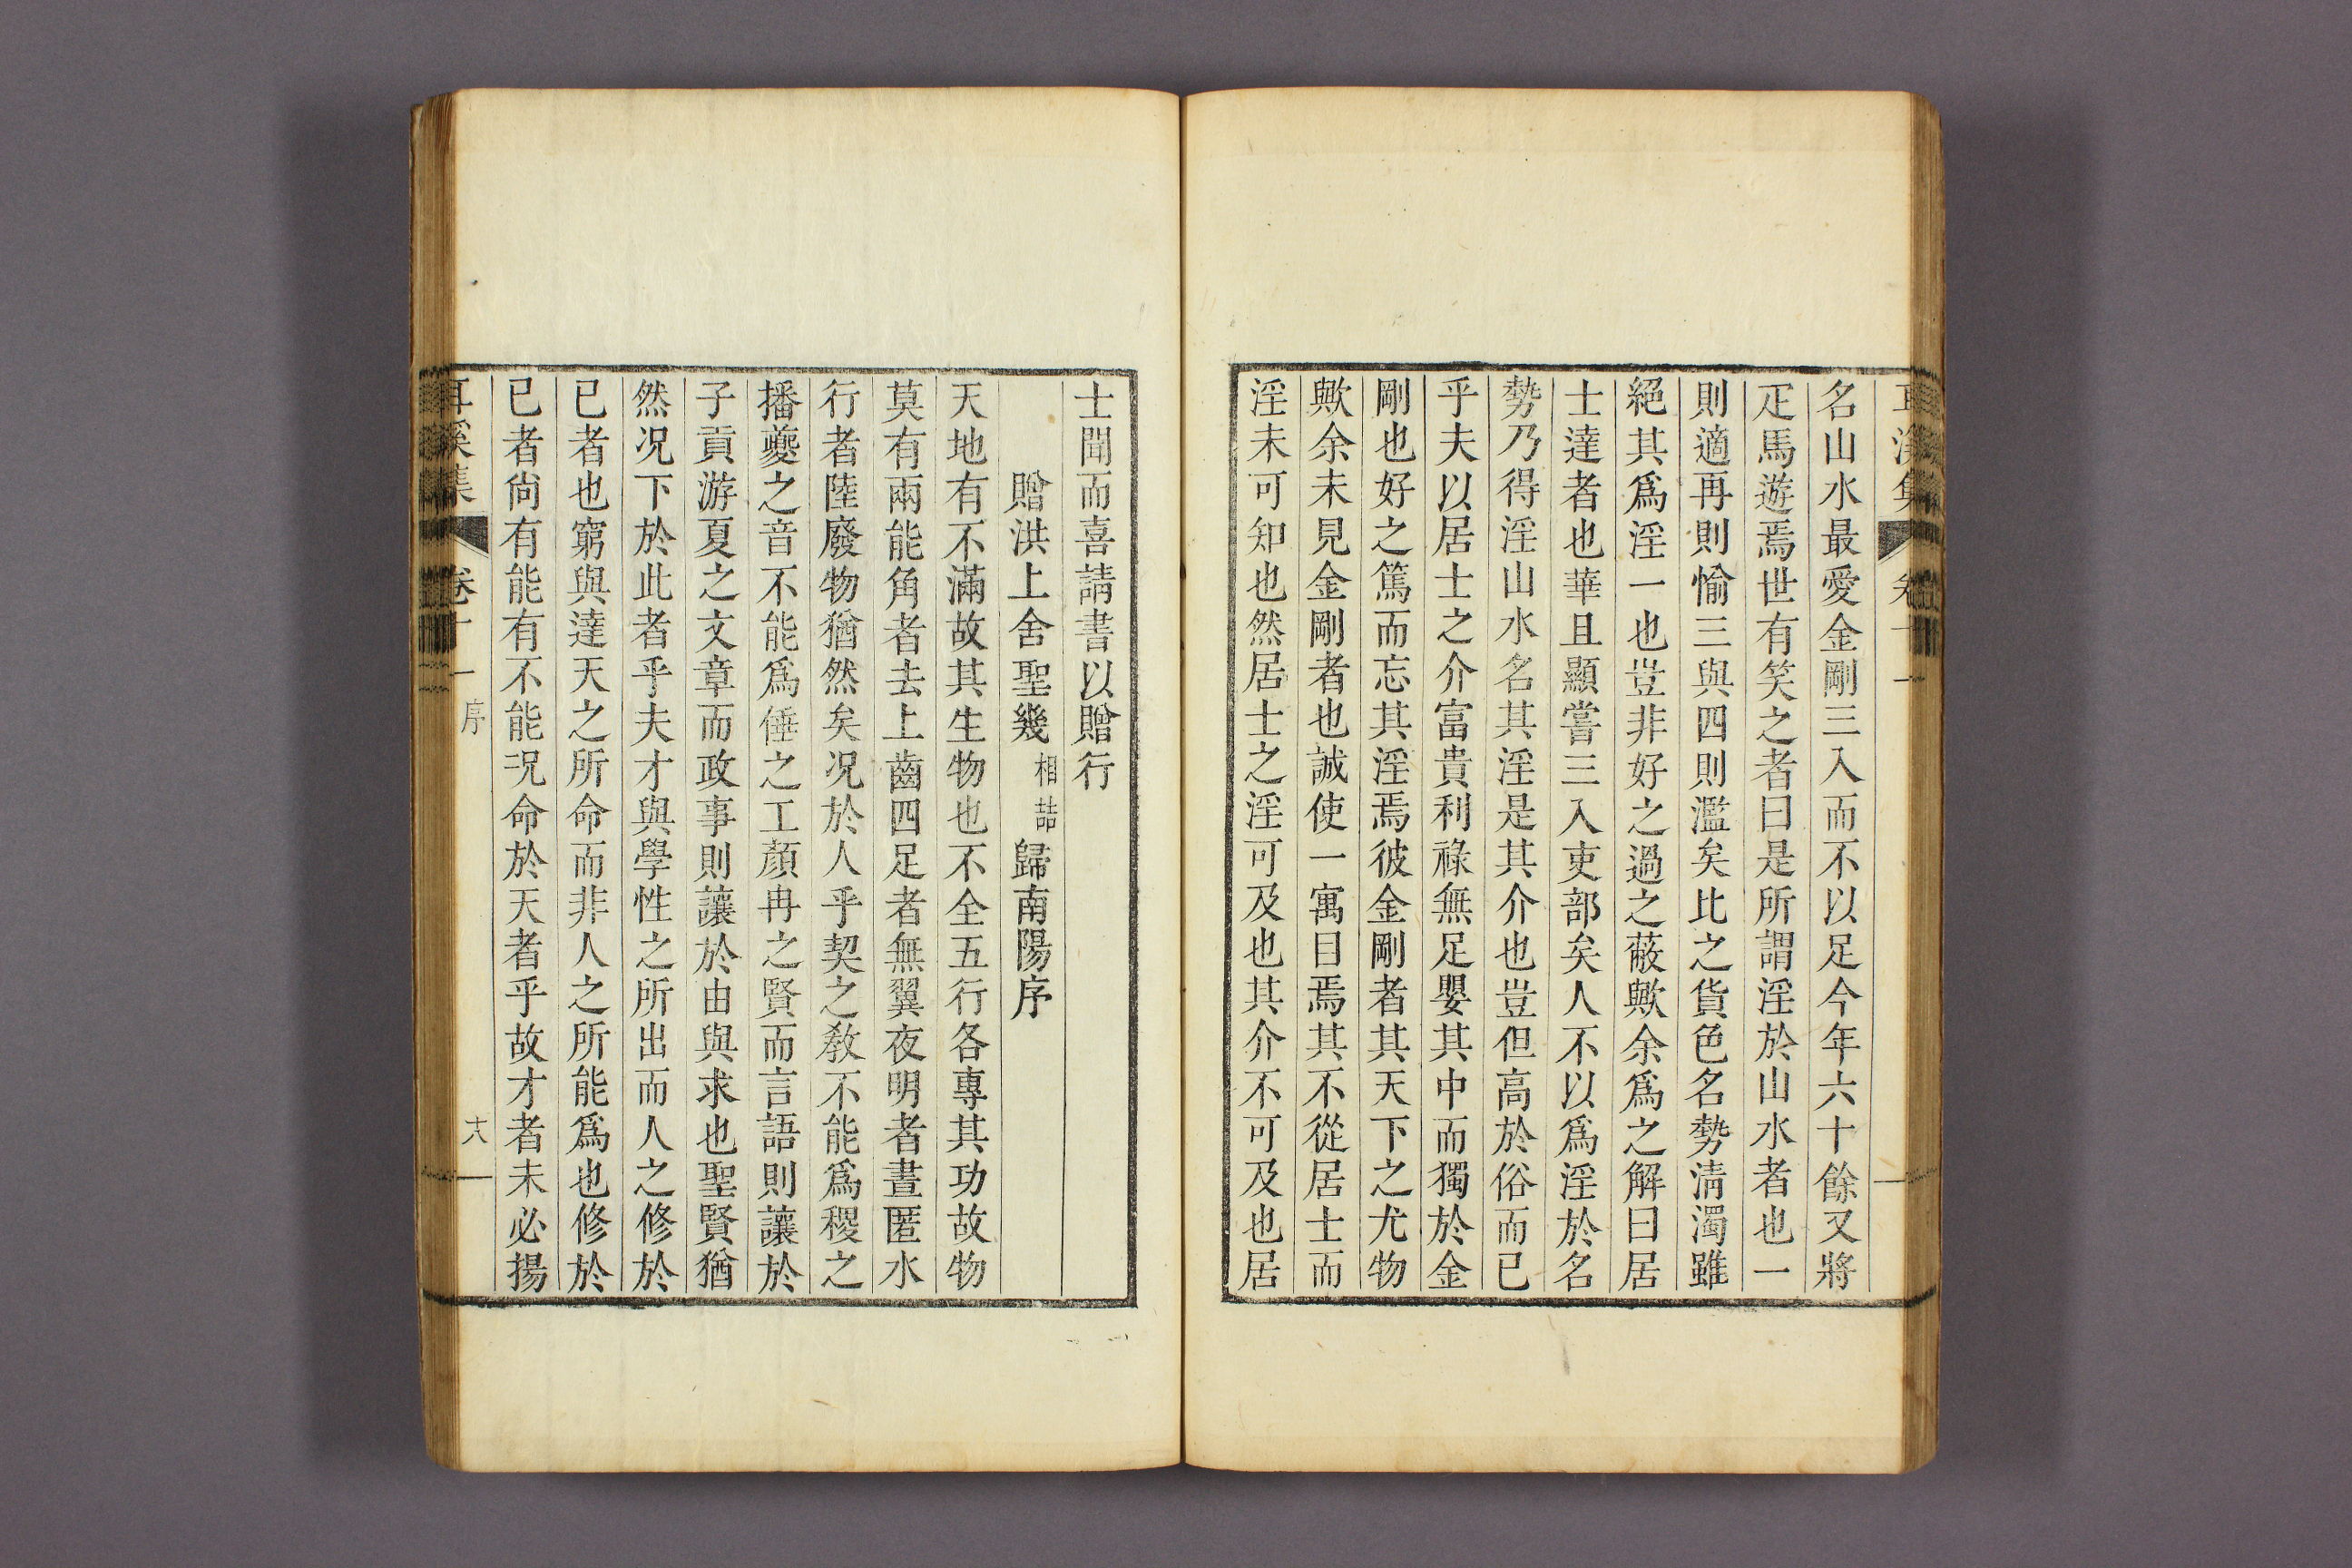 名山水最愛金剛三入而不以足今年六十餘又將
疋馬遊焉世有笑之者曰是所謂淫於山水者也一
則適再則愉三與四則濫矣比之貨色名勢淸濁雖
絕其爲淫一也豈非好之過之蔽歟余爲之解曰居
士達者也華且顯嘗三入吏部矣人不以爲淫於名
勢乃得淫山水名其淫是其介也豈但高於俗而已
乎夫以居士之介富貴利祿無足嬰其中而獨於金
剛也好之篤而忘其淫焉彼金剛者其天下之尤物
歟余未見金剛者也誠使一寓目焉其不從居士而
淫未可知也然居士之淫可及也其介不可及也居
士聞而喜請書以贈行
贈洪上舍聖幾相喆歸南陽序
天地有不滿故其生物也不全五行各專其功故物
莫有兩能角者去上齒四足者無翼夜明者晝匿水
行者陸廢物猶然矣况於人乎契之敎不能爲稷之
播夔之音不能爲倕之工顔冉之賢而言語則讓於
子貢游夏之文章而政事則讓於由與求也聖賢猶
然况下於此者乎夫才與學性之所出而人之修於
已者也窮與達天之所命而非人之所能爲也修於
已者尙有能有不能况命於天者乎故才者未必揚
耳溪集 卷十一 序 十八